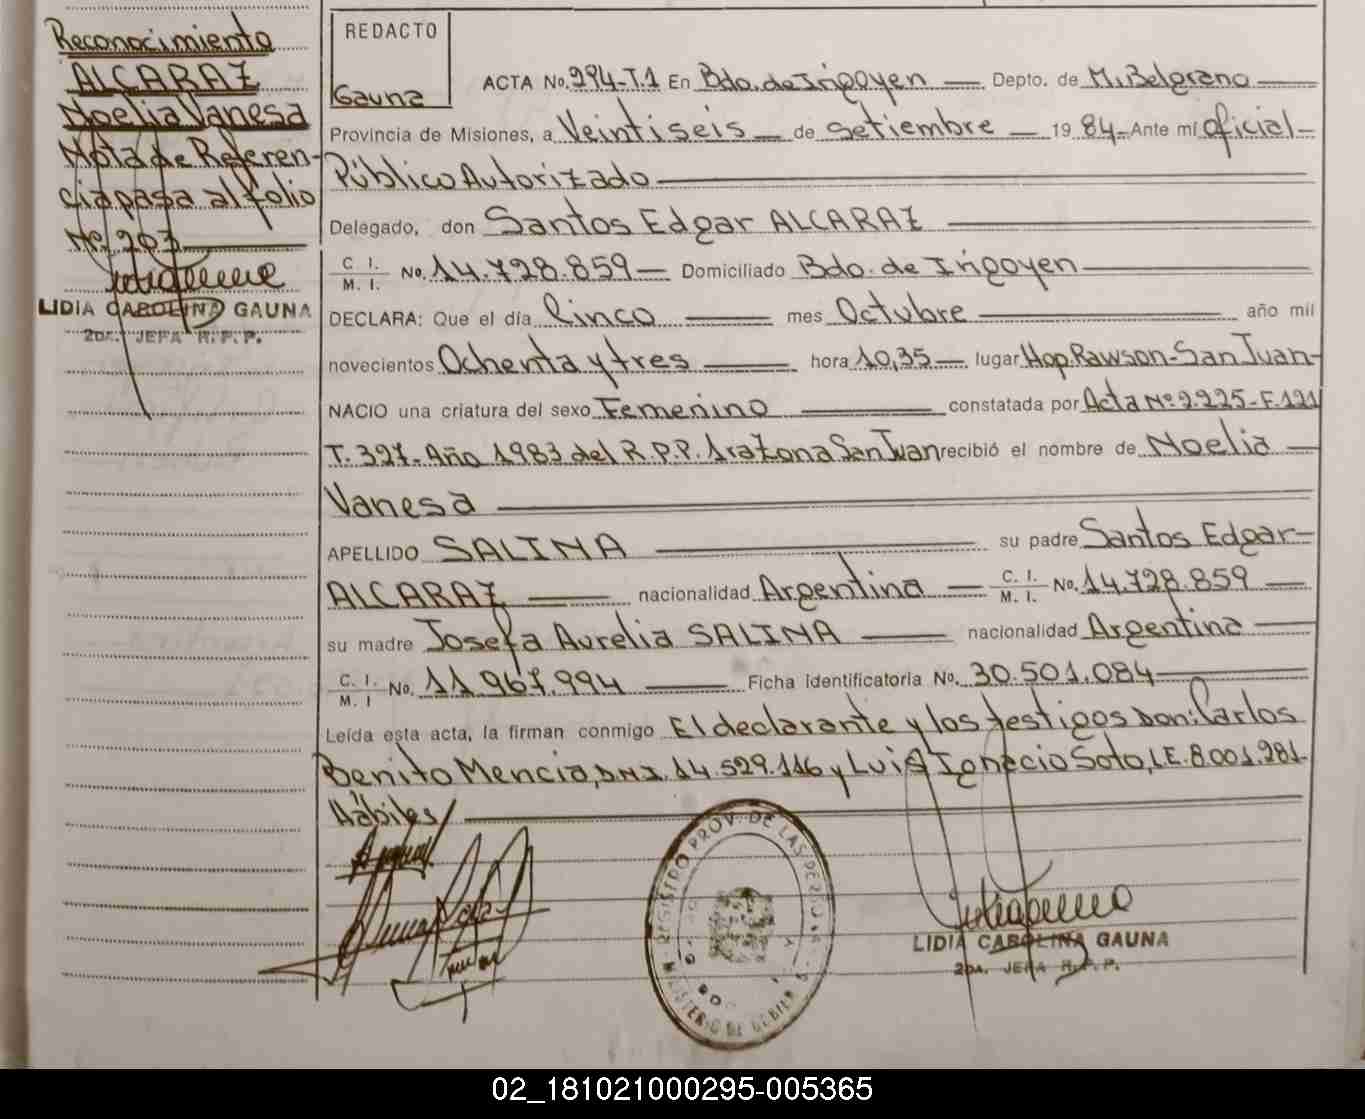 Reconocimiento
ALCARAZ
Noelia Vanesa
Nota de Referen-
cia pasa al folio
Nº 203
LIDIA CAROLINA GAUNA
2DA. JEFA R.P.P.
REDACTO
Gauna
ACTA No. 294-T.1 En Bdo. de Irigoyen Depto. de M. Belgrano
Provincia de Misiones, a Veintiseis de Setiembre 19 84- Ante mí oficial-
Público Autorizado
Delegado, don Santos Edgar ALCARAZ
C. I. / M. I. No. 14.728.859 Domiciliado Bdo. de Irigoyen
DECLARA: Que el día Cinco mes Octubre año mil
novecientos Ochenta y tres hora 10,35 lugar Hop. Rawson-San Juan-
NACIO una criatura del sexo Femenino constatada por Acta Nº 2.225-F.121
T. 327-Año 1983 del R.P.P. 1ra Zona San Juan recibió el nombre de Noelia
Vanesa
APELLIDO SALINA su padre Santos Edgar
ALCARAZ nacionalidad Argentina C. I. / M. I. No. 14.728.859
su madre Josefa Aurelia SALINA nacionalidad Argentina
C. I. / M. I No. 11.967.994 Ficha identificatoria No. 30.501.084
Leída esta acta, la firman conmigo El declarante y los testigos Don: Carlos
Benito Mencia, D.N.I. 14.529.116 y Luis Ignacio Soto, L.E. 8.001.281-
Hábiles
REGISTRO PROV. DE LAS PERSONAS
MINISTERIO DE GOBIERNO
LIDIA CAROLINA GAUNA
2DA. JEFA R.P.P.
02_181021000295-005365